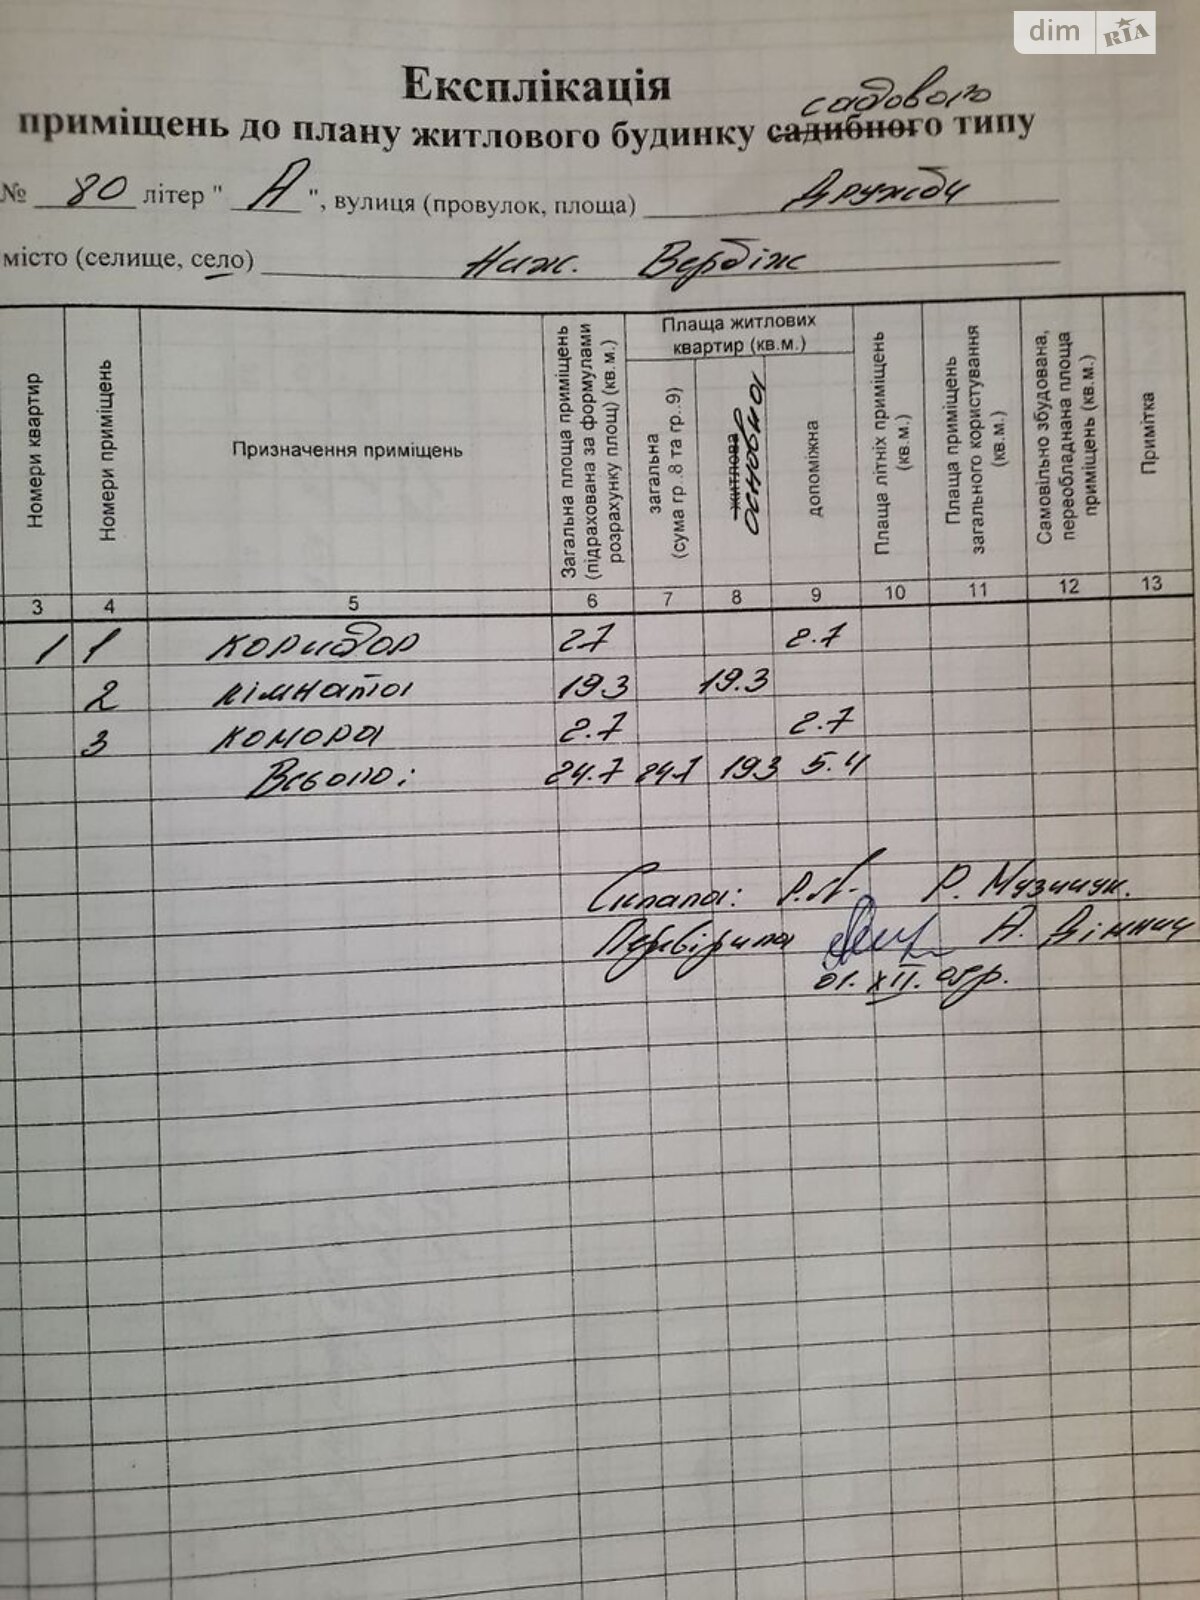 dim RIA
Експлікація
садового
приміщень до плану житлового будинку садибного типу
№ 80 літер " А ", вулиця (провулок, площа) Дружби
місто (селище, село) Ниж. Вербіж
Номери квартир
Номери приміщень
Призначення приміщень
Загальна площа приміщень (підрахована за формулами розрахунку площ) (кв.м.)
Плаща житлових квартир (кв.м.)
загальна (сума гр..8 та гр..9)
житлова основна
допоміжна
Плаща літніх приміщень (кв.м.)
Плаща приміщень загального користування (кв.м.)
Самовільно збудована, переобладнана площа приміщень (кв.м.)
Примітка
3 4 5 6 7 8 9 10 11 12 13
1 1 коридор 2.7 2.7
2 кімната 19.3 19.3
3 комора 2.7 2.7
Всього: 24.7 24.7 19.3 5.4
Склала: Р. Музичук.
Перевірила А.
01.XII.05р.